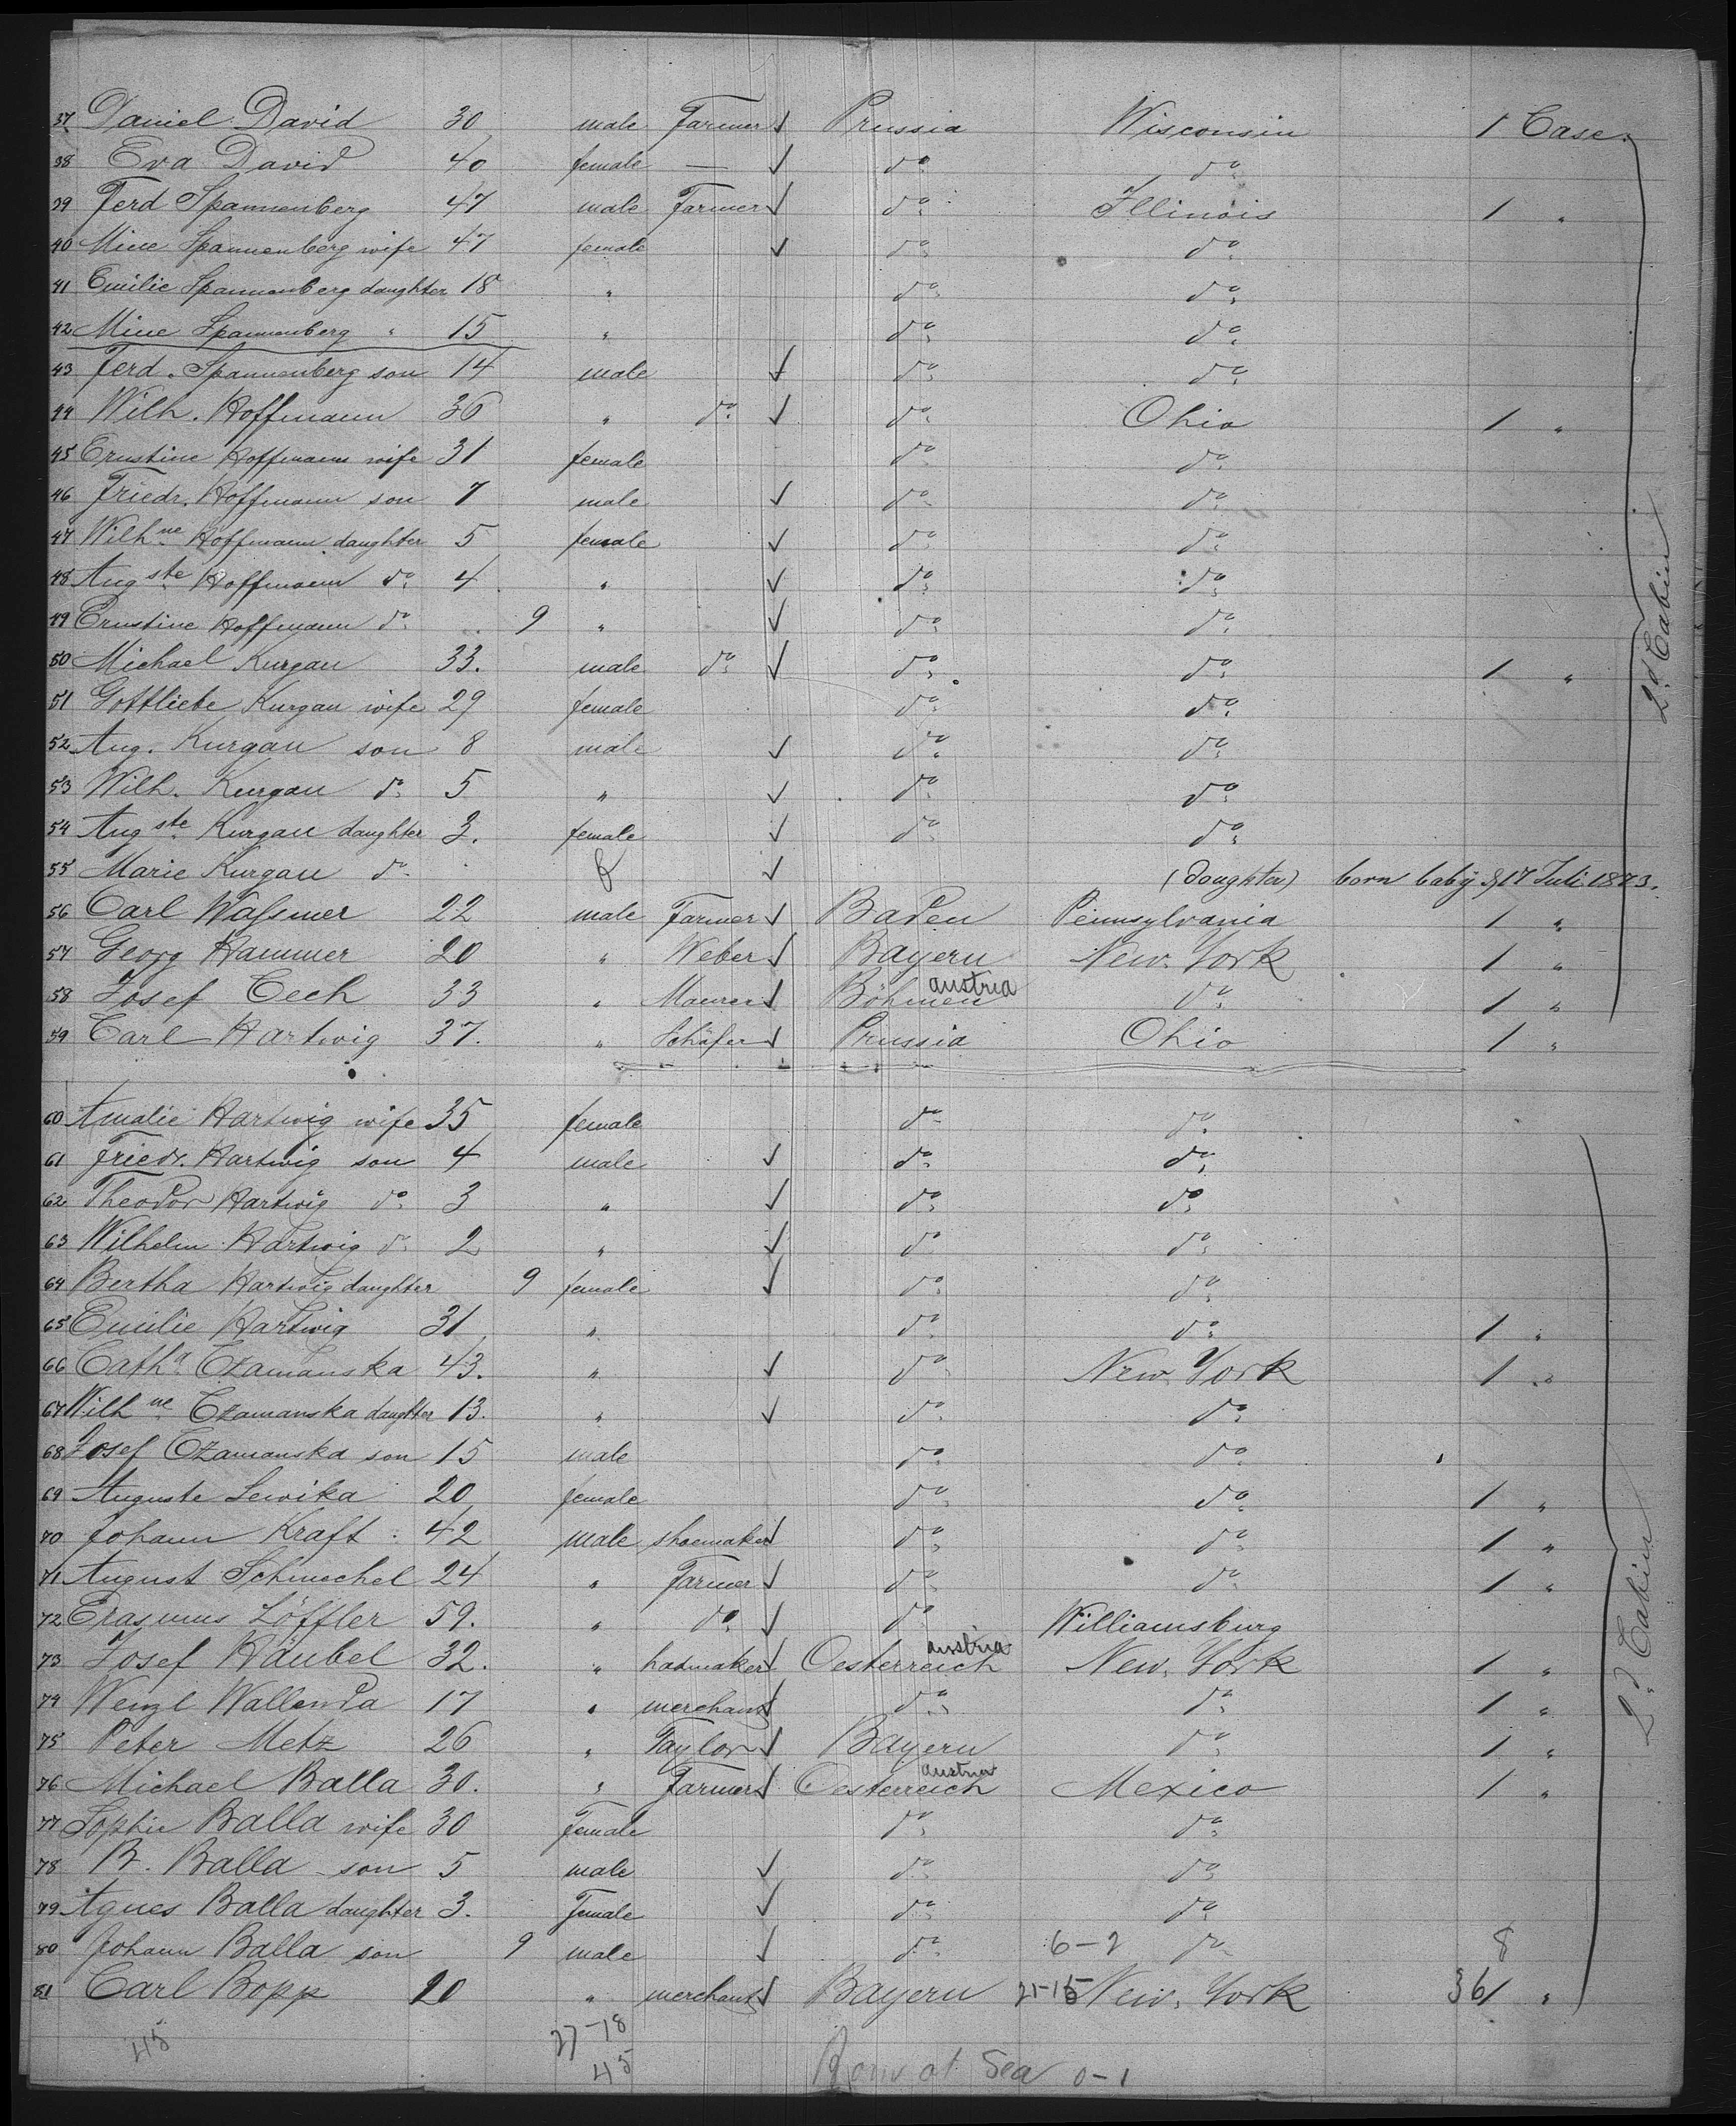 37 Daniel David 30 male Farmer Prussia Wisconsin 1 Case.
38 Eva David 40 female — do do
39 Ferd Spannenberg 47 male Farmer do Illinois 1 "
40 Mine Spannenberg wife 47 female do do
41 Emilie Spannenberg daughter 18 " do do
42 Mine Spannenberg " 15 " do do
43 Ferd. Spannenberg son 14 male do do
44 Wilh. Hoffmann 36 " do do Ohio 1 "
45 Ernstine Hoffmann wife 31 female do do
46 Friedr. Hoffmann son 7 male do do
47 Wilhne Hoffmann daughter 5 female do do
48 Augste Hoffmann do 4 " do do
49 Ernstine Hoffmann do 9 " do do
50 Michael Kurgan 33. male do do do 1 "
51 Gottliebe Kurgan wife 29 female do do
52 Aug. Kurgan son 8 male do do
53 Wilh. Kurgan do 5 " do do
54 Augste Kurgan daughter 3. female do do
55 Marie Kurgan do (daughter) born baby 17 Juli 1873.
56 Carl Waßmer 22 male Farmer Baden Pennsylvania 1 "
57 Georg Hammer 20 " Weber Bayern New York 1 "
58 Josef Cech 33 " Maurer Böhmen austria do 1 "
59 Carl Hartwig 37. " Schäfer Prussia Ohio 1 "
2d Cabin
60 Amalie Hartwig wife 35 female do do
61 Friedr. Hartwig son 4 male do do
62 Theodor Hartwig do 3 " do do
63 Wilhelm Hartwig do 2 " do do
64 Bertha Hartwig daughter 9 female do do
65 Emilie Hartwig 31 " do do 1 "
66 Catha Czamanska 43. " do New York 1 "
67 Wilhne Czamanska daughter 13. " do do
68 Josef Czamanska son 15 male do do
69 Auguste Lewika 20 female do do 1 "
70 Johann Kraft 42 male shoemaker do do 1 "
71 August Schmechel 24 " Farmer do do 1 "
72 Erasmus Löffler 59. " do do Williamsburg
73 Josef Häubel 32. " hatmaker Oesterreich austria New York 1 "
74 Wenzl Wallenda 17 " merchant do do 1 "
75 Peter Metz 26 " Taylor Bayern do 1 "
76 Michael Balla 30. " Farmer Oesterreich austria Mexico 1 "
77 Sophie Balla wife 30 Female do do
78 B. Balla son 5 male do do
79 Agnes Balla daughter 3. Female do do
80 Johann Balla son 9 male do 6-2 do 8
81 Carl Bopp 20 " merchant Bayern New York 36 1 "
2d Cabin
45 27-18
45 Born at Sea 0-1